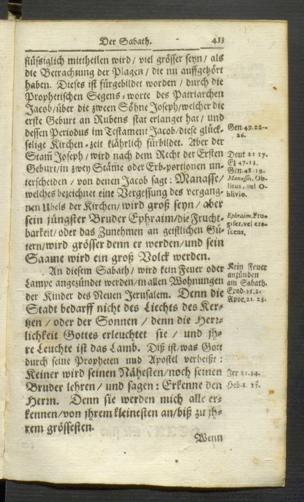 Der Sabath. 433
flüssiglich mittheilen wird / viel grösser seyn / als
die Betrachtung der Plagen / die nu auffgehört
haben. Dieses ist fürgebildet worden / durch die
Prophetischen Segens-worte des Patriarchen
Jacob / über die zween Söhne Joseph / welcher die
erste Geburt an Rubens stat erlanget hat / und
dessen Periodus im Testament Jacob / diese glück-
selige Kirchen-zeit klährlich fürbildet. Aber der
Stam Joseph / wird nach dem Recht der Ersten
Geburt / in zwey Stäme oder Erb-portionen un-
terscheiden / von denen Jacob sagt: Manasse /
welches bezeichnet eine Vergessung des vergang-
nen Ubels der Kirchen / wird groß seyn / aber
sein jüngster Bruder Ephraim / die Frucht-
barkeit / oder das Zunehmen an geistlichen Gü-
tern / wird grösser denn er werden / und sein
Saame wird ein groß Volck werden.
An diesem Sabath / wird kein Feuer oder
Lampe angezündet werden / in allen Wohnungen
der Kinder des Neuen Jerusalem. Denn die
Stadt bedarff nicht des Liechts des Ker-
tzen / oder der Sonnen / denn die Herr-
lichkeit Gottes erleuchtet sie / und ih-
re Leuchte ist das Lamb. Diß ist, was Gott
durch seine Propheten und Apostel verheist:
Keiner wird seinen Nähesten / noch seinen
Bruder lehren / und sagen: Erkenne den
Herrn. Denn sie werden mich alle er-
kennen / von ihrem kleinesten an / biß zu ih-
rem grössesten.
Wenn
Gen 49. 22--
26.
Deut 21 17.
Gen. 48. 19.
Manasse, Ob-
litus, vel O-
blivio.
Kein Feuer
anzünden
am Sabath.
Apoc. 21. 23.